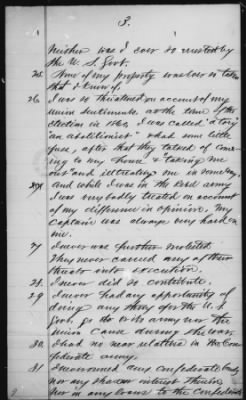 3.
neither was I ever so arrested by
the U. S. Govt.
25. None of my property was ever so taken
that I know of.
26 I was so threatened on account of my
union sentiments, at the time of the
election in 1860. I was called "a tory
an abolitionist" & had some little
fuss, after that they talked of com-
ing to my house & taking me
out and illtreating me in some way,
and while I was in the Rebel army
I was very badly treated on account
of my difference in opinion. My
Captain was always very hard on
me.
27 I never was further molested.
They never carried any of their
threats into execution.
28. I never did so contribute.
29 I never had any opportunity of
doing any thing for the U. S.
Govt. or its army nor the
Union Cause during the war.
30. I had no near relatives in the Con-
federate army.
31 I never owned any Confederate bonds
nor any share or interest therein
nor in any loans to the Confederate